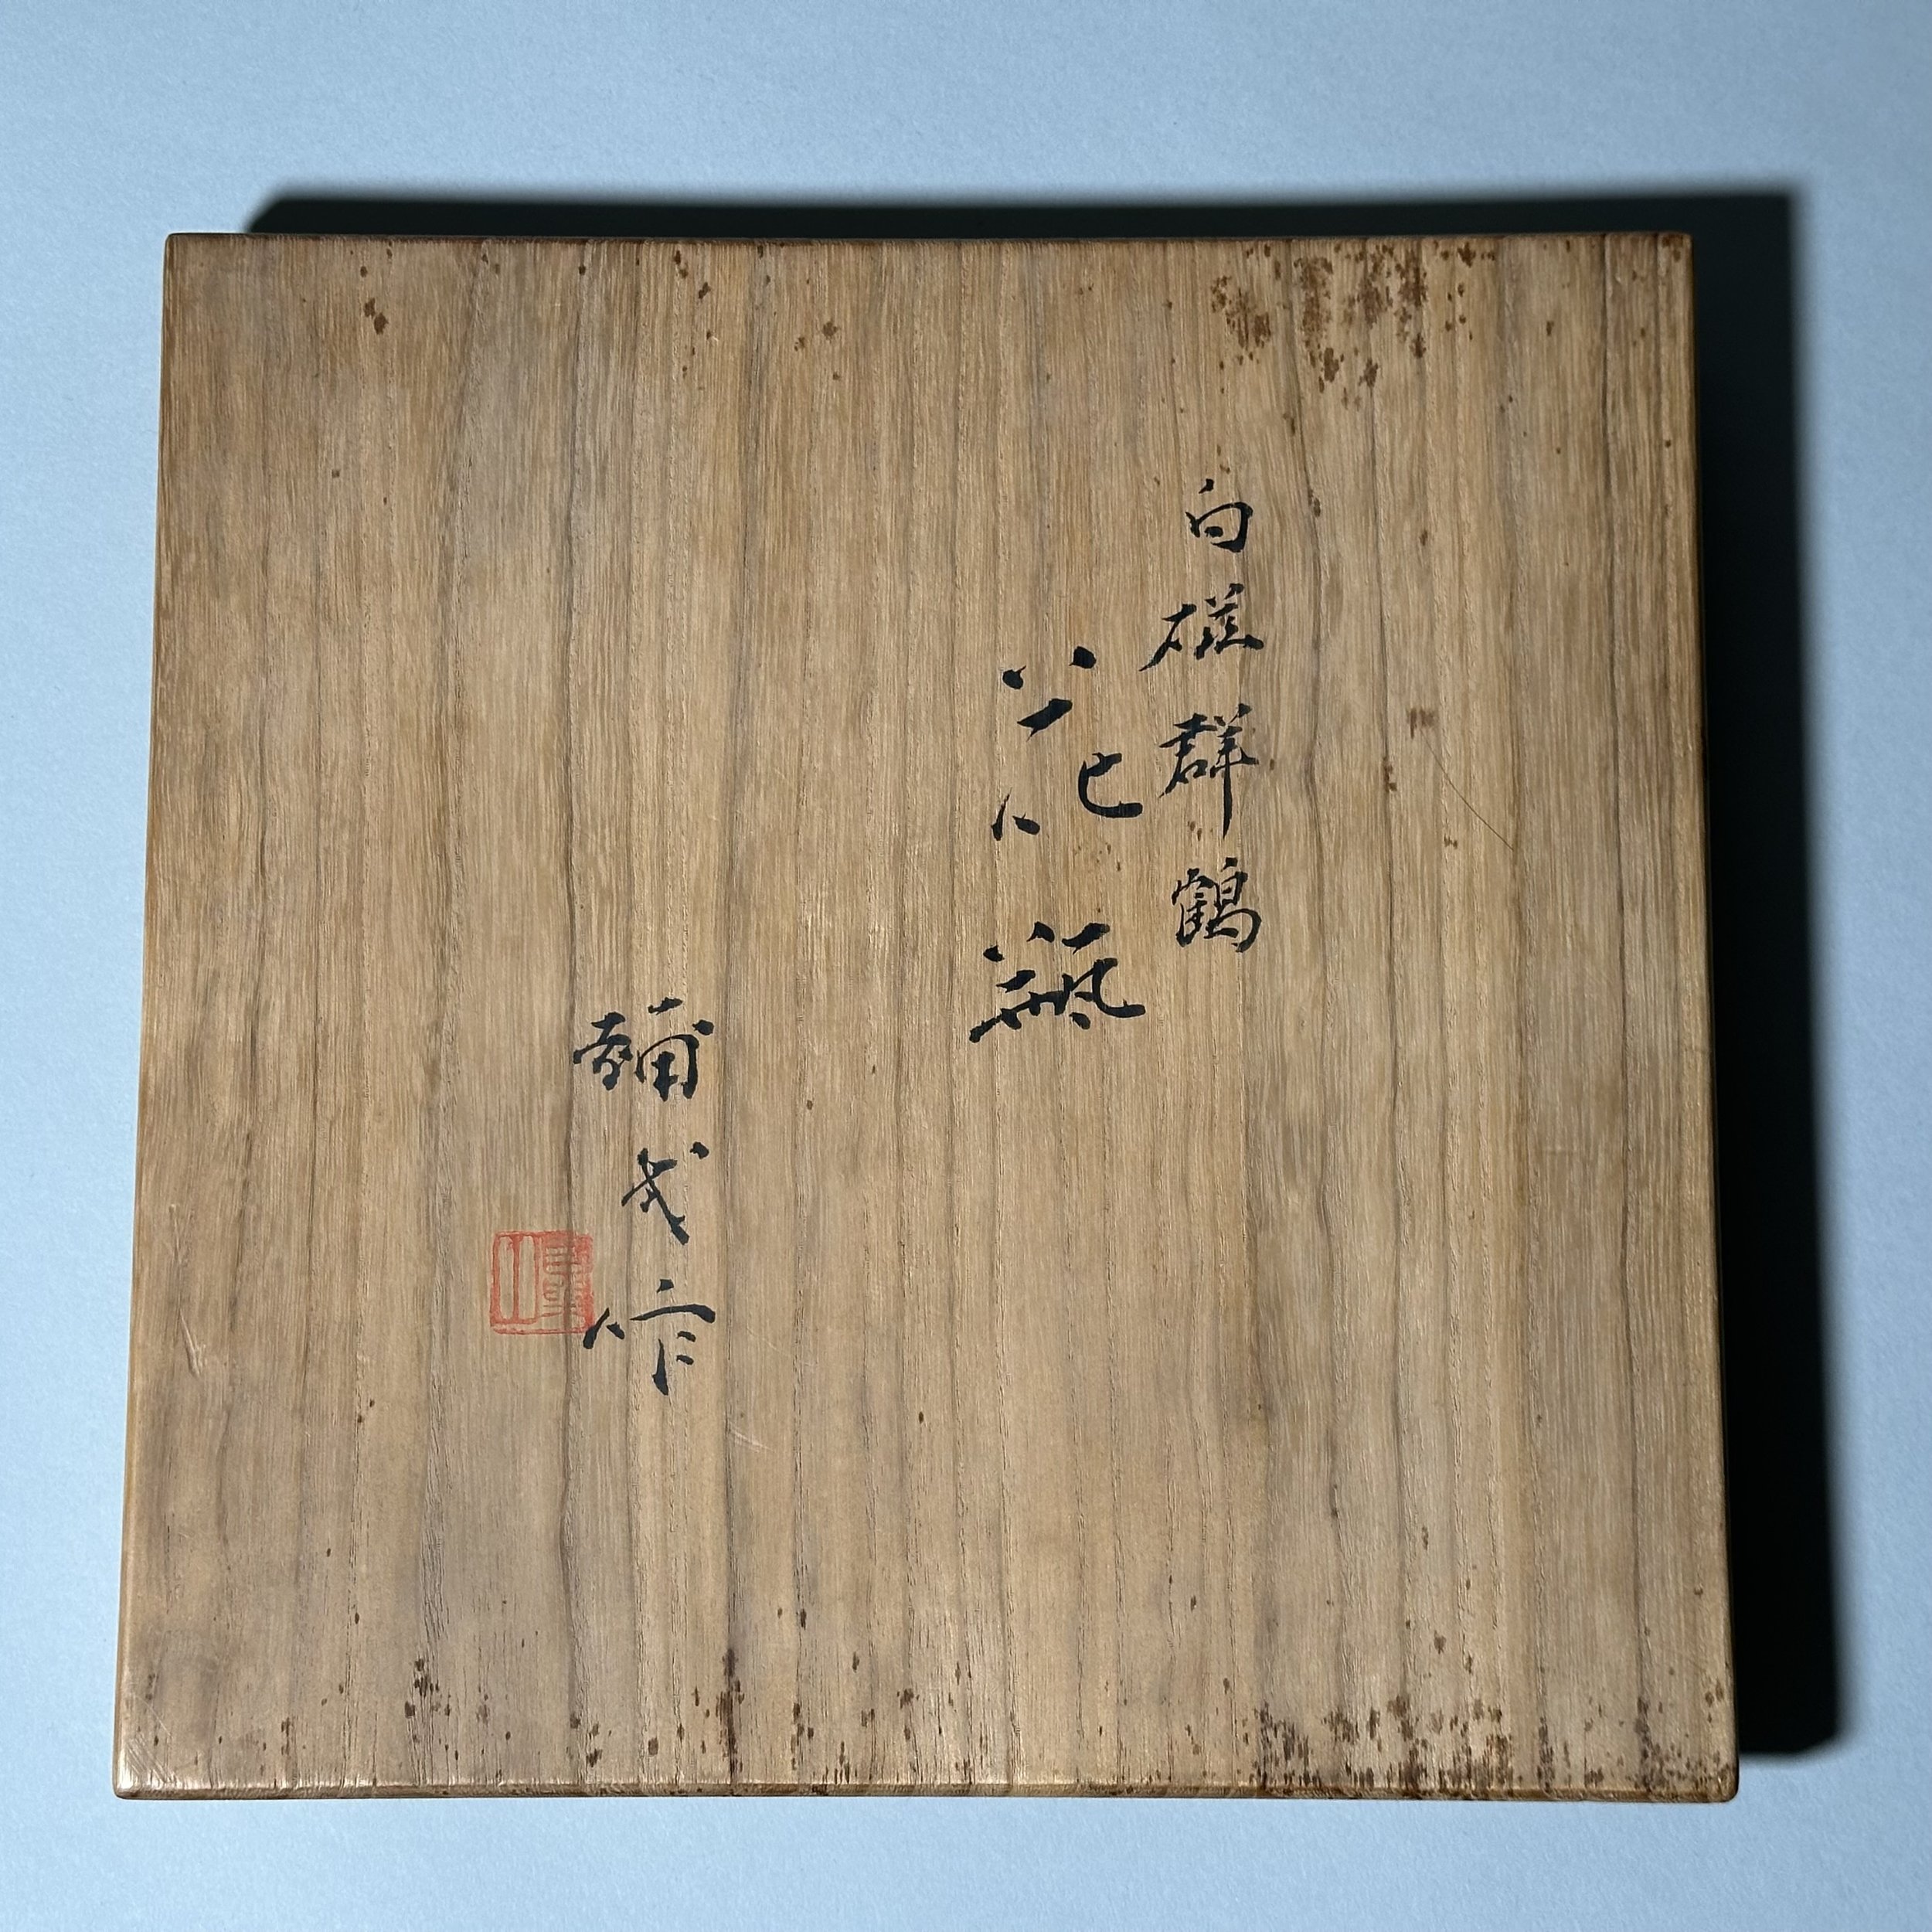 白磁群鶴
花瓶
輔弌作